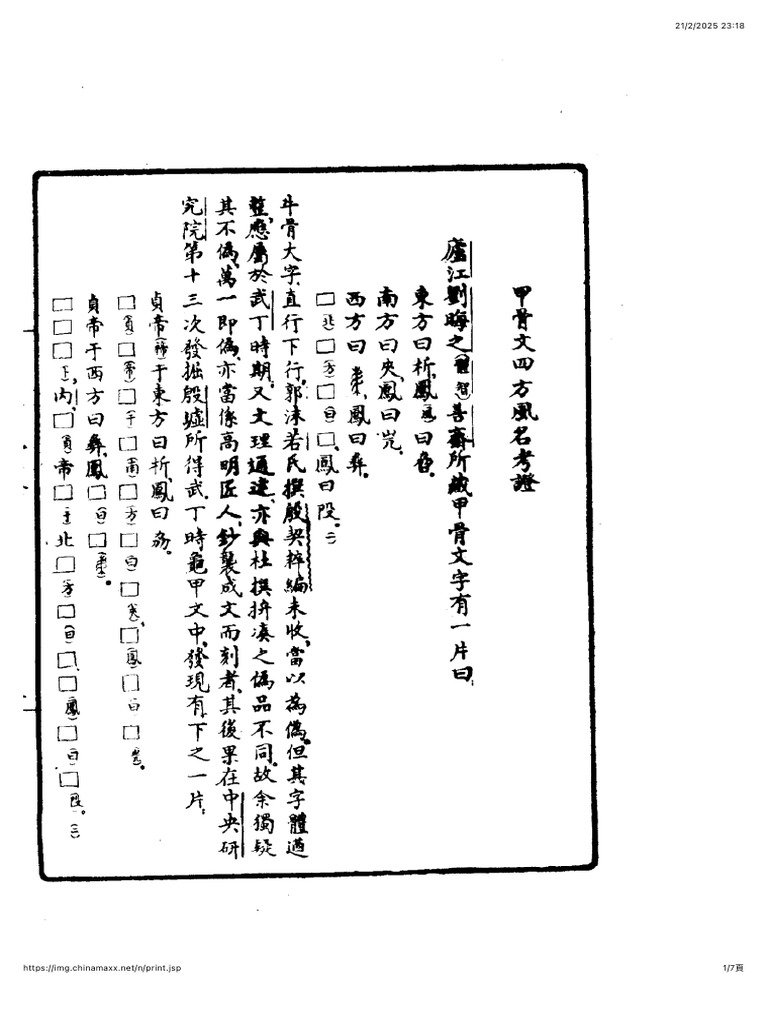 21/2/2025 23:18
甲骨文四方風名考證
廬江劉晦之(體智)善齋所藏甲骨文字有一片曰：
東方曰析，鳳(風)曰
南方曰夾，鳳曰
西方曰，鳳曰彝。
□(北)□(方)□(曰)□，鳳曰𠬝。(一)
牛骨大字，直行下行。郭沫若氏撰殷契粹編未收，當以為偽。但其字體遒
整，應屬於武丁時期。又文理通達，亦與杜撰拚湊之偽品不同。故余獨疑
其不偽。萬一即偽，亦當係高明匠人，鈔襲成文而刻者。其後果在中央研
究院第十三次發掘殷墟所得武丁時龜甲文中，發現有下之一片：
貞帝(禘)于東方曰析，鳳曰
□(貞)□(帝)□(于)□(南)□(方)□(曰)□，□(鳳)□(曰)□。
貞帝于西方曰彝，鳳□(曰)□。
□□□(卜)，內，□(貞)帝□(于)北□(方)□(曰)□□(鳳)□(曰)□𠬝。(二)
https://img.chinamaxx.net/n/print.jsp
1/7頁